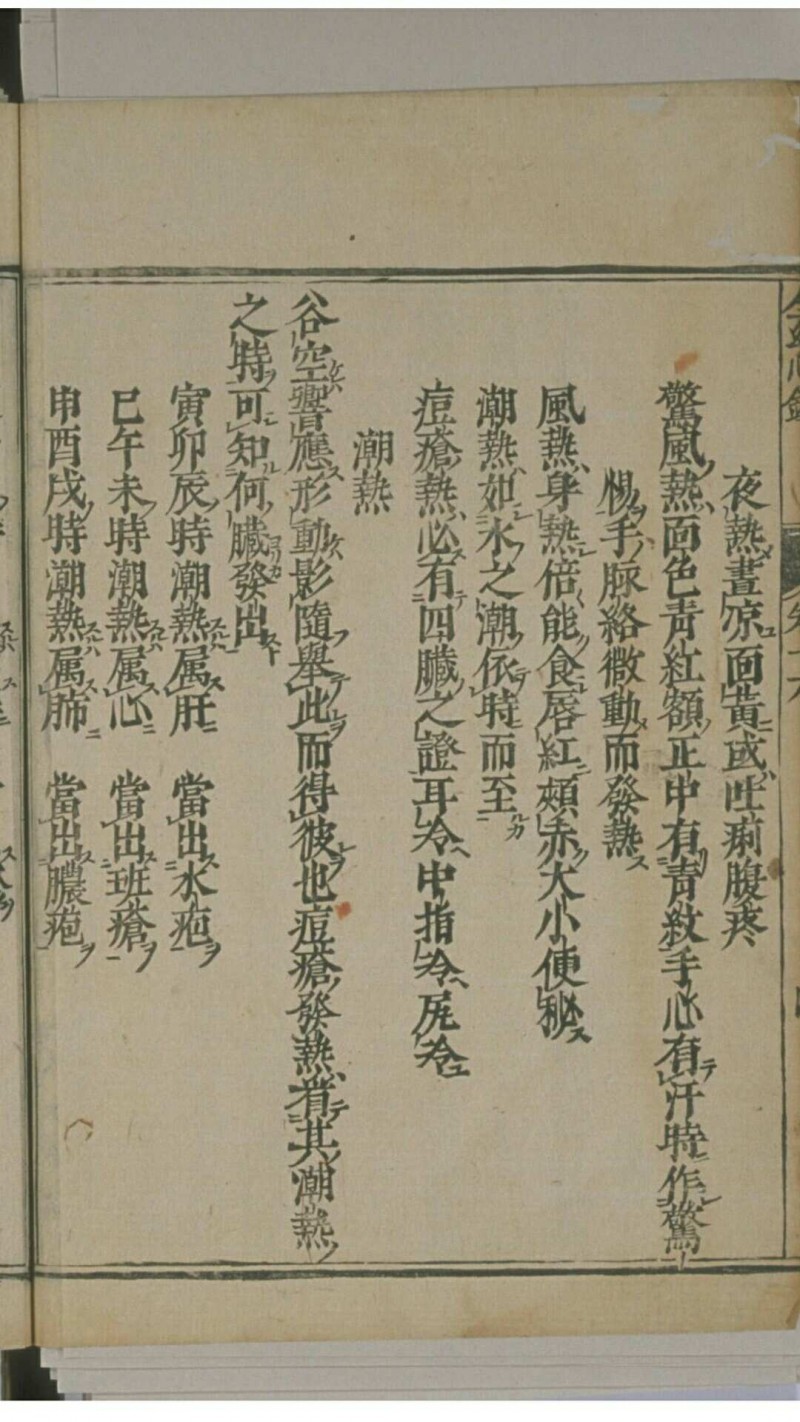 夜熱晝凉面黃或吐痢腹疼
驚風熱面色青紅額正中有青紋手心有汗時作驚
惕手脉絡微動而發熱
風熱身熱倍能食唇紅頰赤大小便秘
潮熱如水之潮依時而至
痘瘡熱必有四臟之證耳冷中指冷尻冷
潮熱
谷空響應形動影隨舉此而得彼也痘瘡發熱看其潮熱
之時可知何臟發出
寅卯辰時潮熱属肝　當出水疱
巳午未時潮熱属心　當出班瘡
申酉戌時潮熱属肺　當出膿疱